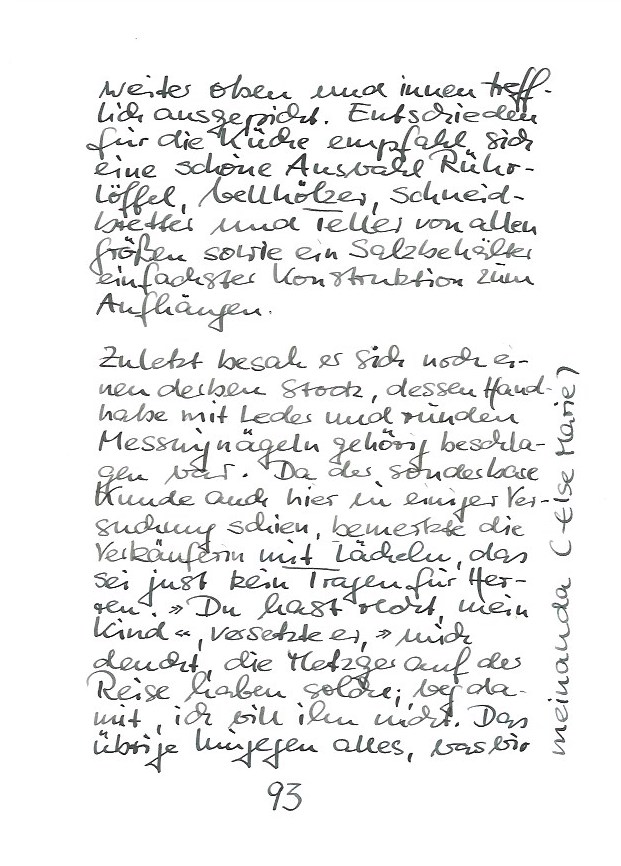 weiter oben und innen treff-
lich ausgepicht. Entschieden
für die Küche empfahl sich
eine schöne Auswahl Rühr-
löffel, Wellhölzer, Schneid-
bretter und Teller von allen
Größen sowie ein Salzbehälter
einfachster Konstruktion zum
Aufhängen.
Zuletzt besah er sich noch ei-
nen derben Stock, dessen Hand-
habe mit Leder und runden
Messingnägeln gehörig beschla-
gen war. Da der sonderbare
Kunde auch hier in einiger Ver-
suchung schien, bemerkte die
Verkäuferin mit Lächeln, das
sei just kein Tragen für Her-
ren. » Du hast recht, mein
Kind «, versetzte er, » mich
deucht, die Metzger auf der
Reise haben solche; weg da-
mit, ich will ihn nicht. Das
übrige hingegen alles, was wir
93
meinanda (-Else Marie)